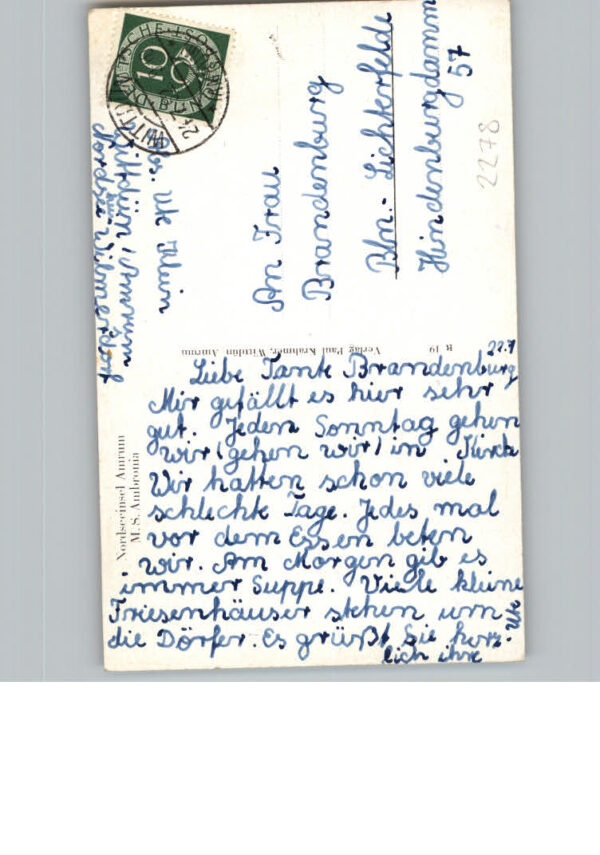 22.7
Liebe Tante Brandenburg
Mir gefällt es hier sehr
gut. Jeden Sonntag gehen
wir (gehen wir) in Kirch
Wir hatten schon viele
schlechte Tage. Jedes mal
vor dem Essen beten
wir. Am Morgen gib es
immer Suppe. Viele kleine
Friesenhäuser stehen um
die Dörfer. Es grüßt Sie herz-
lich ihre
Ute
An Frau
Brandenburg
Bln.- Lichterfelde
Hindenburgdamm
57
2278
Abs. Ute
Wittdün / Amrum
Nordsee
DEUTSCHE BUNDESPOST
10
Verlag Paul Krahmer, Wittdün Amrum
R 19
Nordseeinsel Amrum
M. S. Ambronia